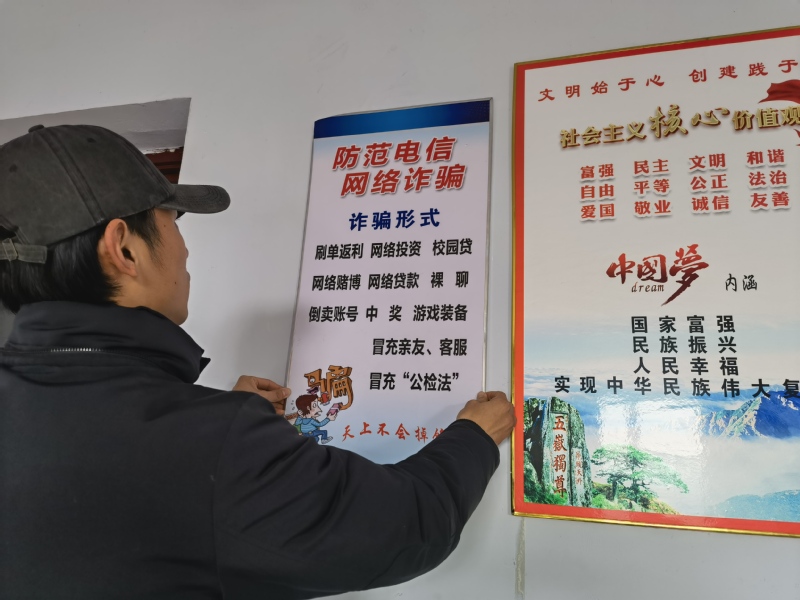 防范电信
网络诈骗
诈骗形式
刷单返利 网络投资 校园贷
网络赌博 网络贷款 裸聊
倒卖账号 中奖 游戏装备
冒充亲友、客服
冒充“公检法”
骗
天上不会掉
文明始于心 创建践于
社会主义核心价值观
富强 民主 文明 和谐
自由 平等 公正 法治
爱国 敬业 诚信 友善
中国夢
dream
内涵
国家富强
民族振兴
人民幸福
实现中华民族伟大复
五嶽獨尊